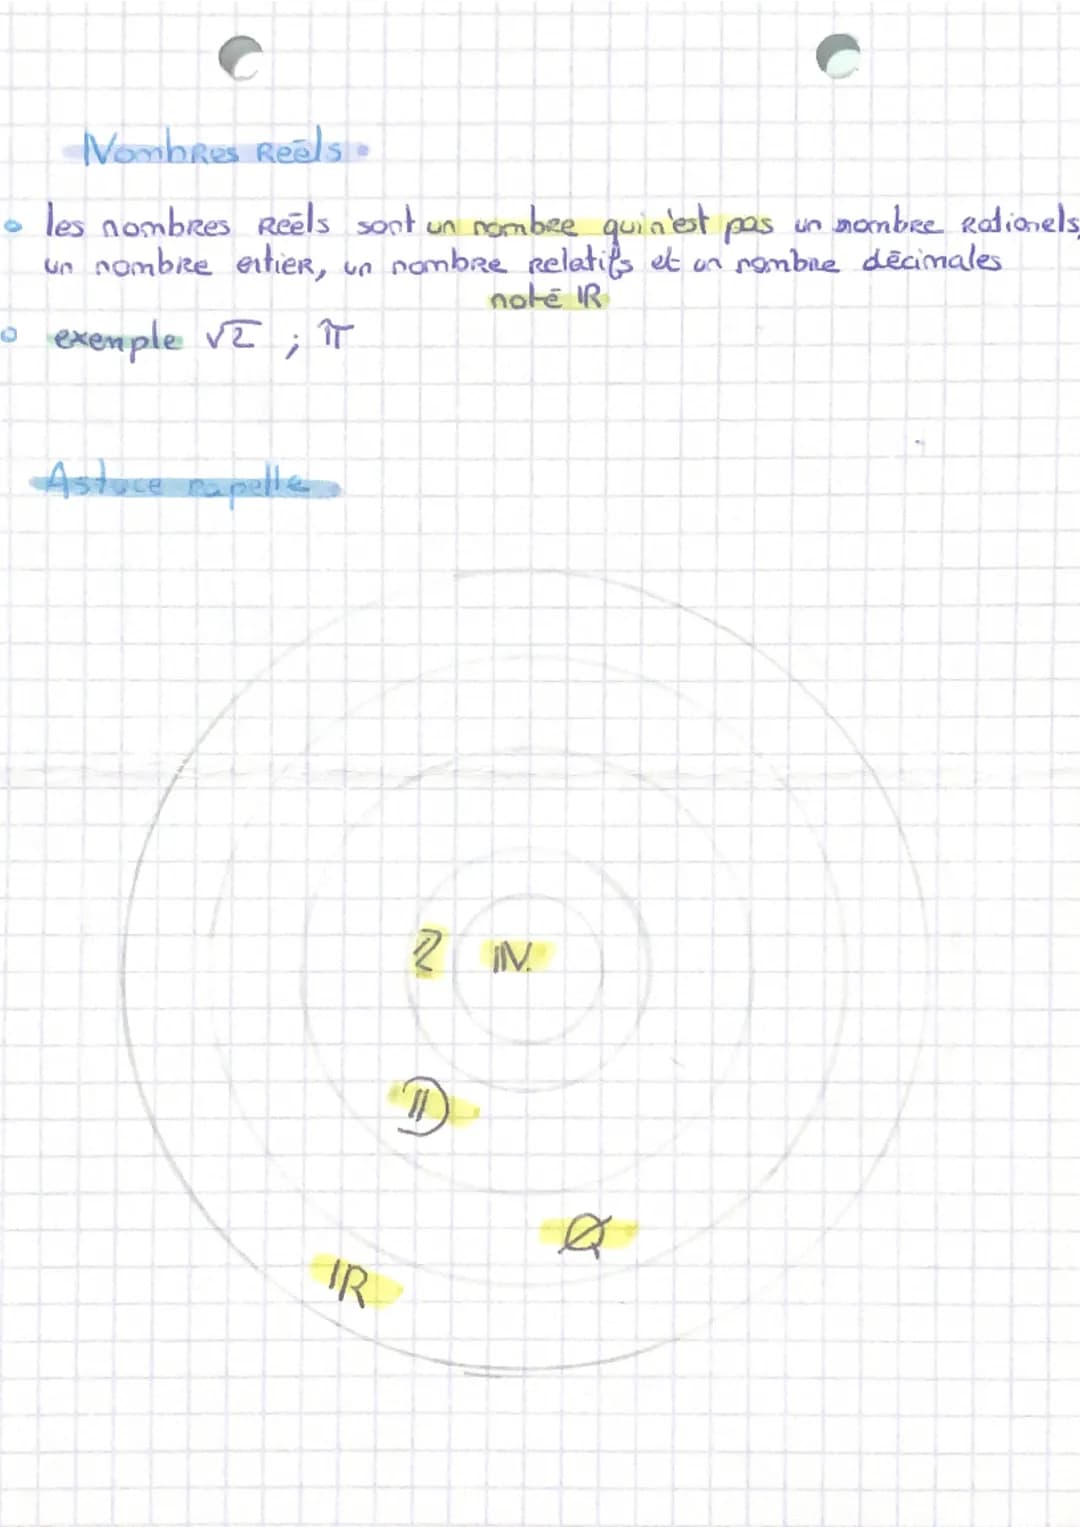 Nombres Reēls
les nombres Reēls sont un nombre qui n'est pas un nombre Rationels,
un nombre entier, un nombre Relatifs et un nombre dēcimales
notē IR
exemple √2 ; π
Astuce rapelle
Z IN.
ID
Q
IR